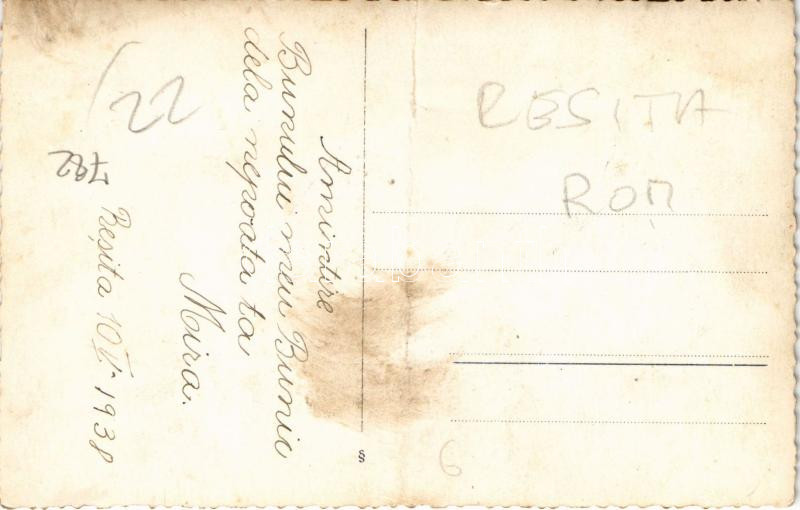 Amintire
Bunului meu Bunic
dela nepoata ta
Mira.
Reșita 10 V 1938
782
22
RESITA
ROM
6
§